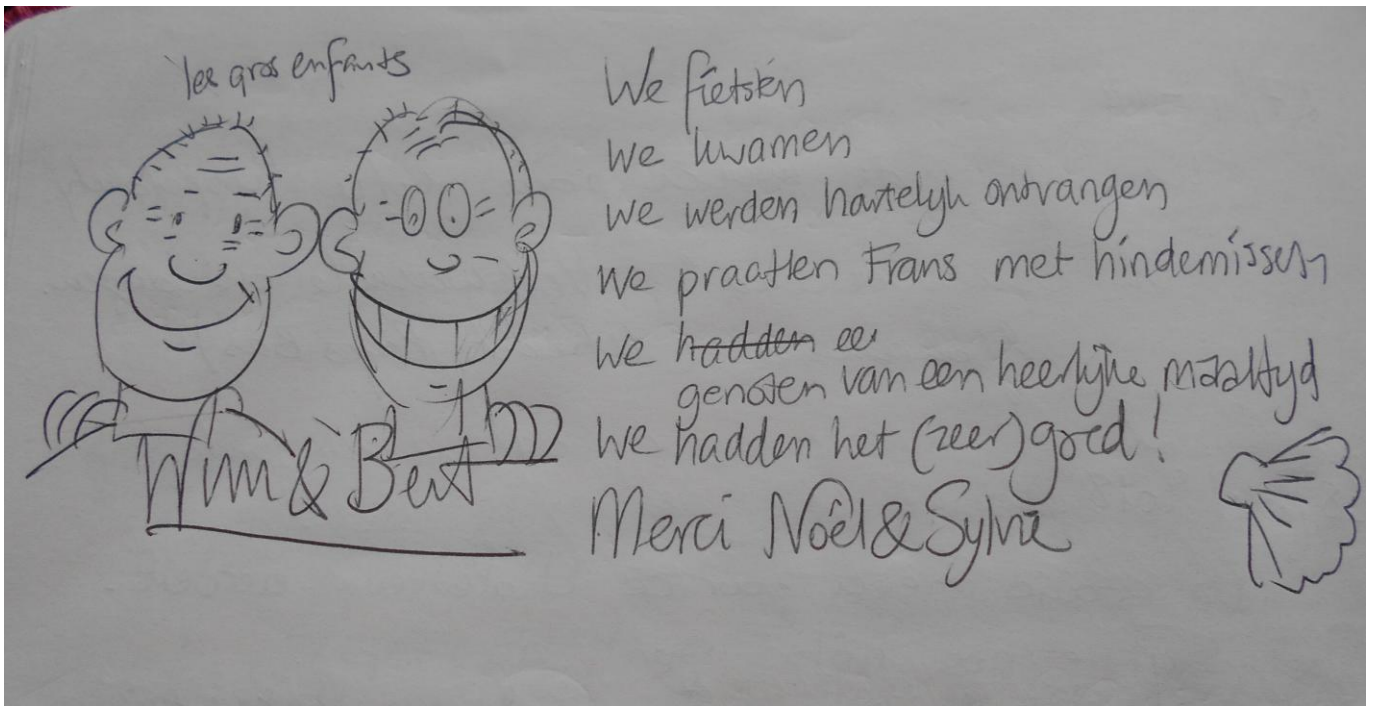 les gros enfants
Wim & Bert
We fietsten
We kwamen
We werden hartelijk ontvangen
We praatten Frans met hindernissen
We hadden ee
genoten van een heerlijke maaltijd
We hadden het (zeer) goed!
Merci Noël & Sylvie